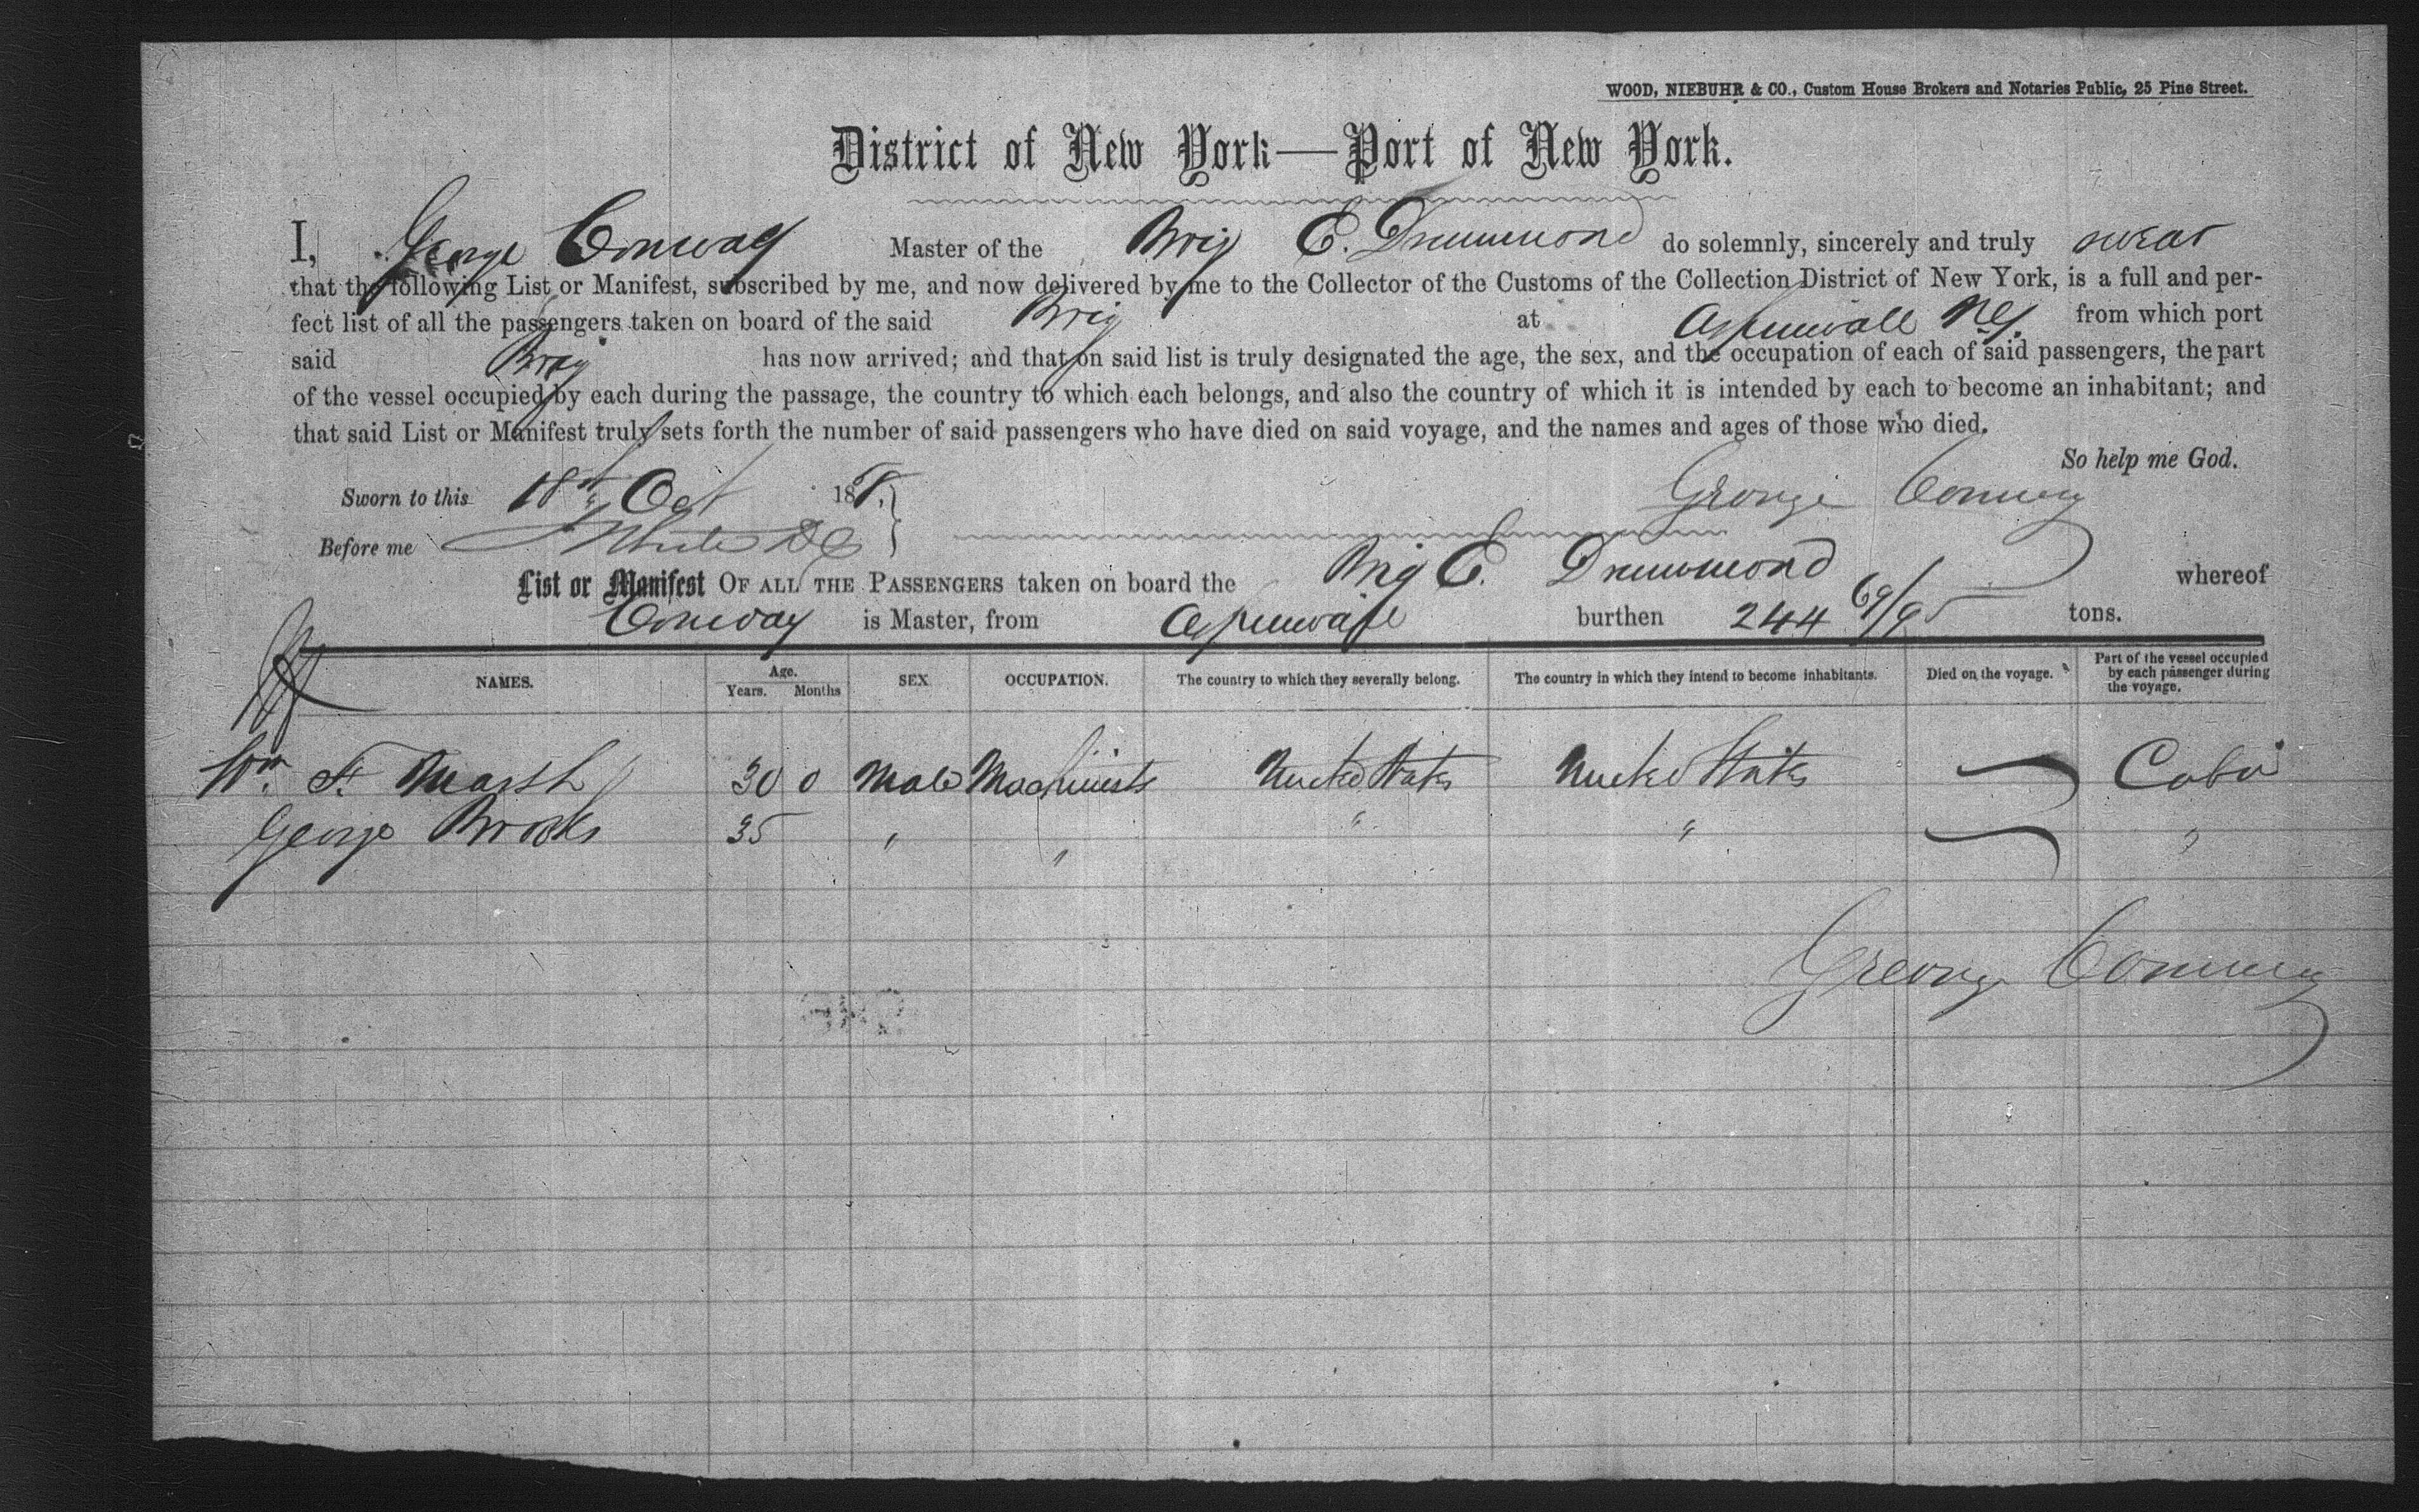 WOOD, NIEBUHR & CO., Custom House Brokers and Notaries Public, 25 Pine Street.
District of New York—Port of New York.
I, George Conway Master of the Brig E. Drummond do solemnly, sincerely and truly swear
that the following List or Manifest, subscribed by me, and now delivered by me to the Collector of the Customs of the Collection District of New York, is a full and per-
fect list of all the passengers taken on board of the said Brig at Aspinwall from which port
said Brig has now arrived; and that on said list is truly designated the age, the sex, and the occupation of each of said passengers, the part
of the vessel occupied by each during the passage, the country to which each belongs, and also the country of which it is intended by each to become an inhabitant; and
that said List or Manifest truly sets forth the number of said passengers who have died on said voyage, and the names and ages of those who died.
So help me God.
Sworn to this 18th Oct 188 George Conway
Before me
List or Manifest OF ALL THE PASSENGERS taken on board the Brig E. Drummond whereof
Conway is Master, from Aspinwall burthen 244 69/95 tons.
NAMES. Age. Years. Months SEX OCCUPATION. The country to which they severally belong. The country in which they intend to become inhabitants. Died on the voyage. Part of the vessel occupied by each passenger during the voyage.
Wm. F. Marsh 30 0 Male Machinists United States United States Cabin
George Brooks 35 " " " " "
George Conway